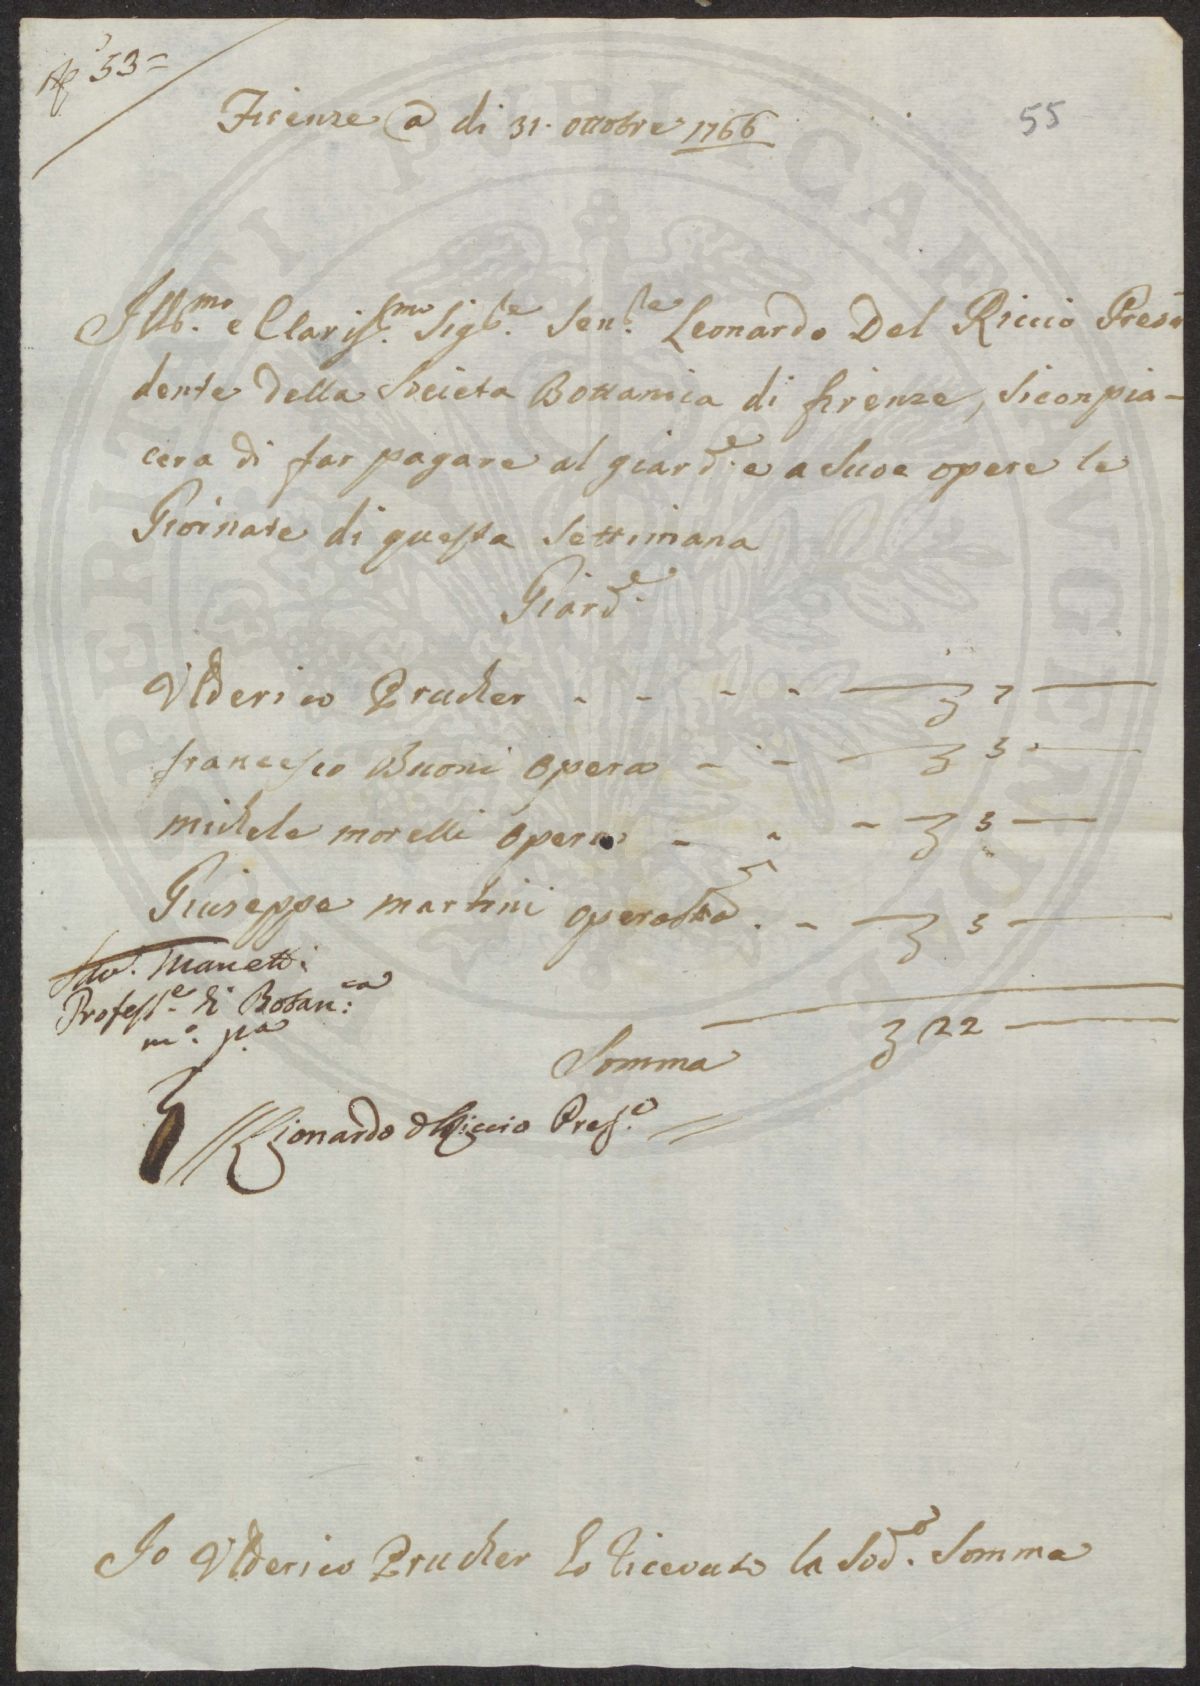 N.° 53=
55
Firenze a di 31. Ottobre 1766
Illb.mo e Clariss.mo Sig.re Sen.re Leonardo Del Riccio Presi
dente della Società Bottanica di firenze, si conpia-
cera di far pagare al giard.e e a sue opere le
Giornate di questa settimana
Giard.e
Vlderico Prucker - - - - 7
francesco Buoni opera - - - 5
michele morelli opera - - - 5
Giuseppe martini opera - - 5
Sav. Manetti
Profess.e di Botan.ca
m.o p.a
Somma 22
Lionardo d Riccio Pres.e
Io Vlderico Prucker ho ricevuto la Sod.a Somma
SPERITATI PUBLICAE AUGENDAE